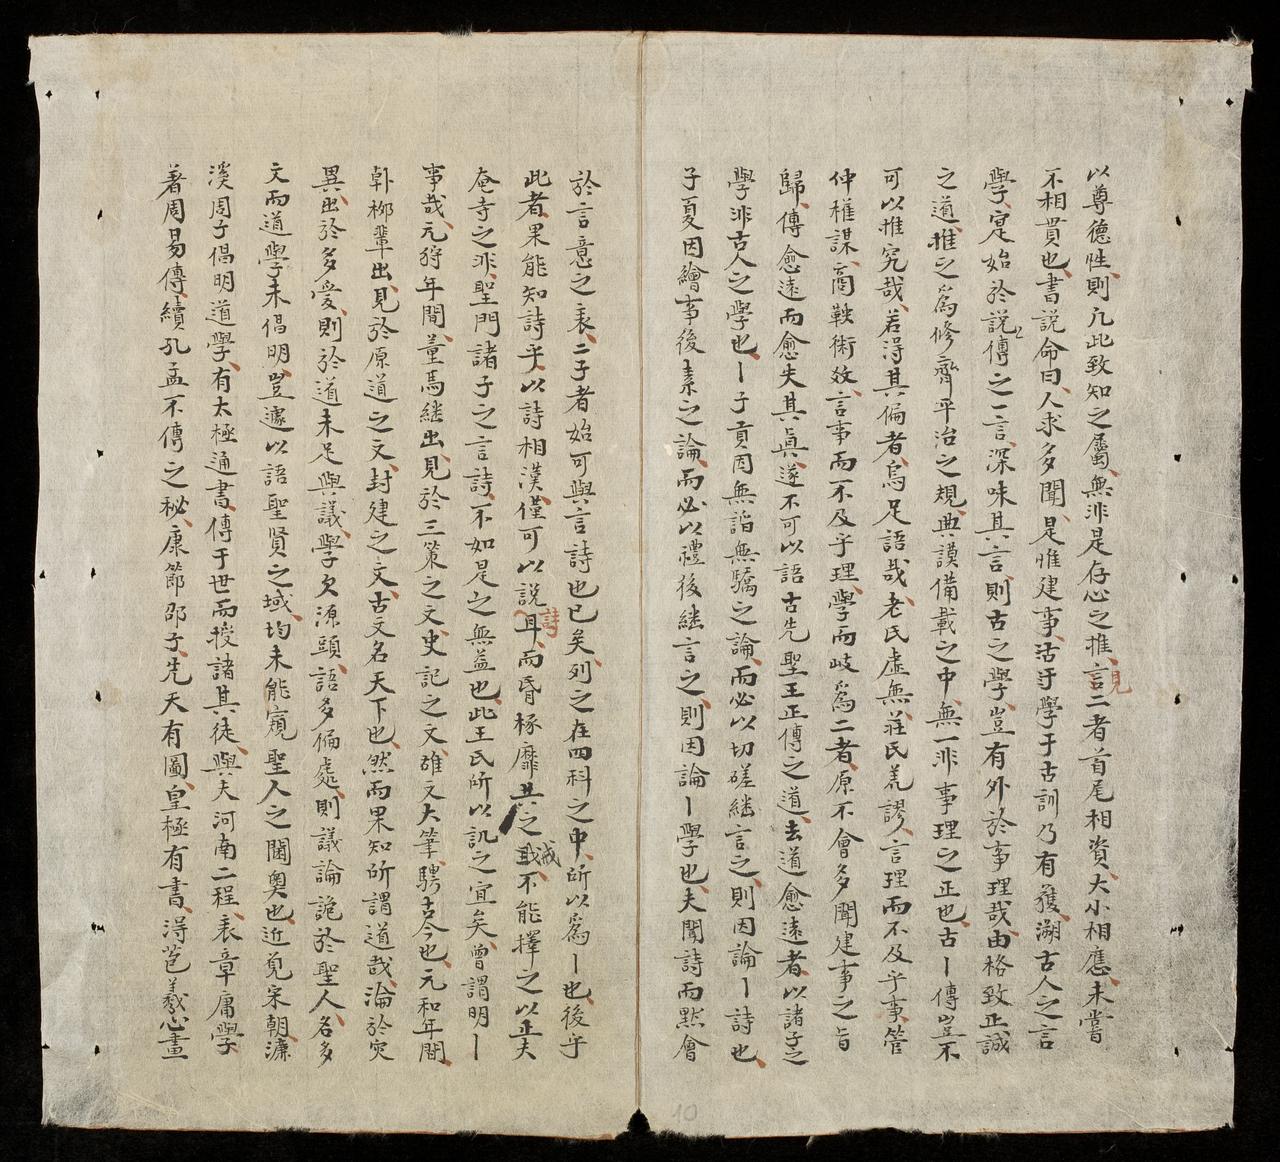 以尊德性則凡此致知之屬無非是存心之推言二者首尾相資大小相應未嘗
見
不相貫也書說命曰人求多聞是惟建事沽于學于古訓乃有獲溯古人之言
學寔始於說傳之一言深味其言則古之學豈有外於事理哉由格致正誠
之道推之爲修齊平治之規典謨備載之中無一非事理之正也古丨傳豈不
可以推究哉若淂其偏者烏足語哉老氏虛無莊氏荒謬言理而不及乎事管
仲權謀商鞅術效言事而不及乎理學而岐爲二者原不會多聞建事之旨
歸傳愈遠而愈失其眞遂不可以語古先聖王正傳之道去道愈遠者以諸子之
學非古人之學也丨子貢因無諂無驕之論而必以切磋継言之則因論丨詩也
子夏因繪事後素之論而必以禮後継言之則因論丨學也夫聞詩而默會
於言意之表二子者始可與言詩也已矣列之在四科之中所以爲丨也後乎
此者果能知詩乎以詩相漢僅可以說耳而昏椓靡共之戒不能擇之以正夫
詩
奄寺之非聖門諸子之言詩不如是之無益也此王氏所以訊之宜矣曾謂明丨
事哉元狩年間董馬継出見於三策之文史記之文雄文大筆騁古今也元和年間
韓柳輩出見於原道之文封建之文古文名天下也然而果知所謂道哉淪於灾
異出於多愛則於道未足與議學欠源頭語多偏處則議論詭於聖人名多
文而道學未倡明豈遽以語聖賢之域均未能窺聖人之閫奧也近覓宋朝濂
溪周子倡明道學有太極通書傳于世而授諸其徒與夫河南二程表章庸學
著周易傳續孔孟不傳之秘康節邵子先天有圖皇極有書淂苞羲心畫